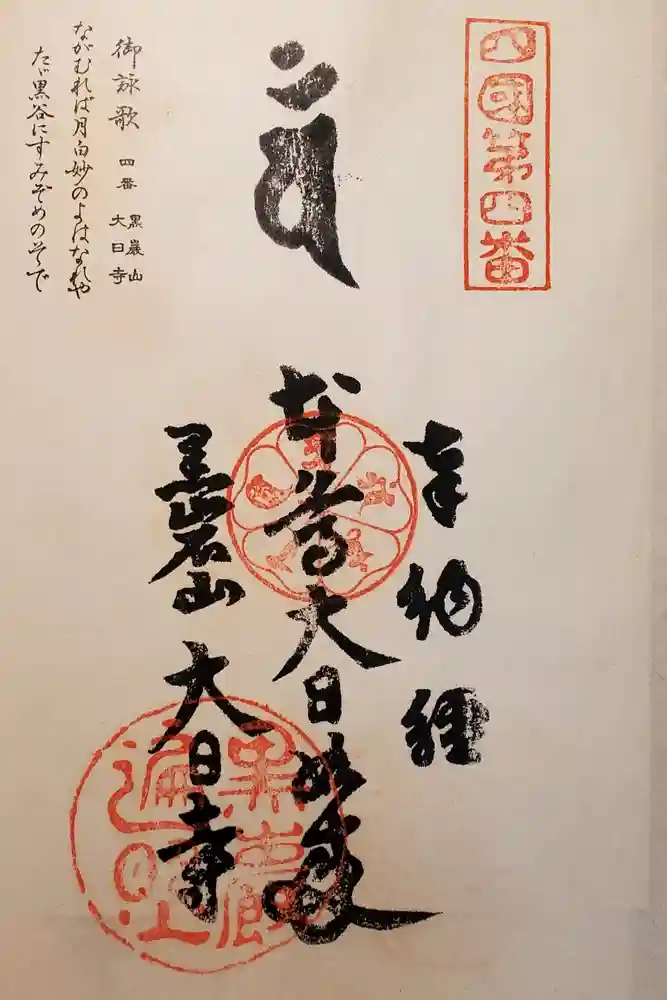 四國第四番
奉納経
本尊大日如来
黒岩山
大日寺
黒巖山
遍照
御詠歌 四番 黒巖山 大日寺
ながむれば月白妙のよはなれや
たゞ黒谷にすみぞめのそで